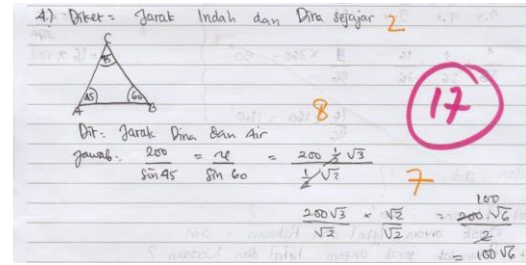 4.) Diket = Jarak Indah dan Dina sejajar 2
C
75
45 60
A B
8
17
Dit = Jarak Dina dan Air
Jawab: 200 / sin 45 = x / sin 60 = 200 ½ √3 / ½ √2
7
200 √3 / √2 × √2 / √2 = 200 √6 / 2 100
= 100 √6